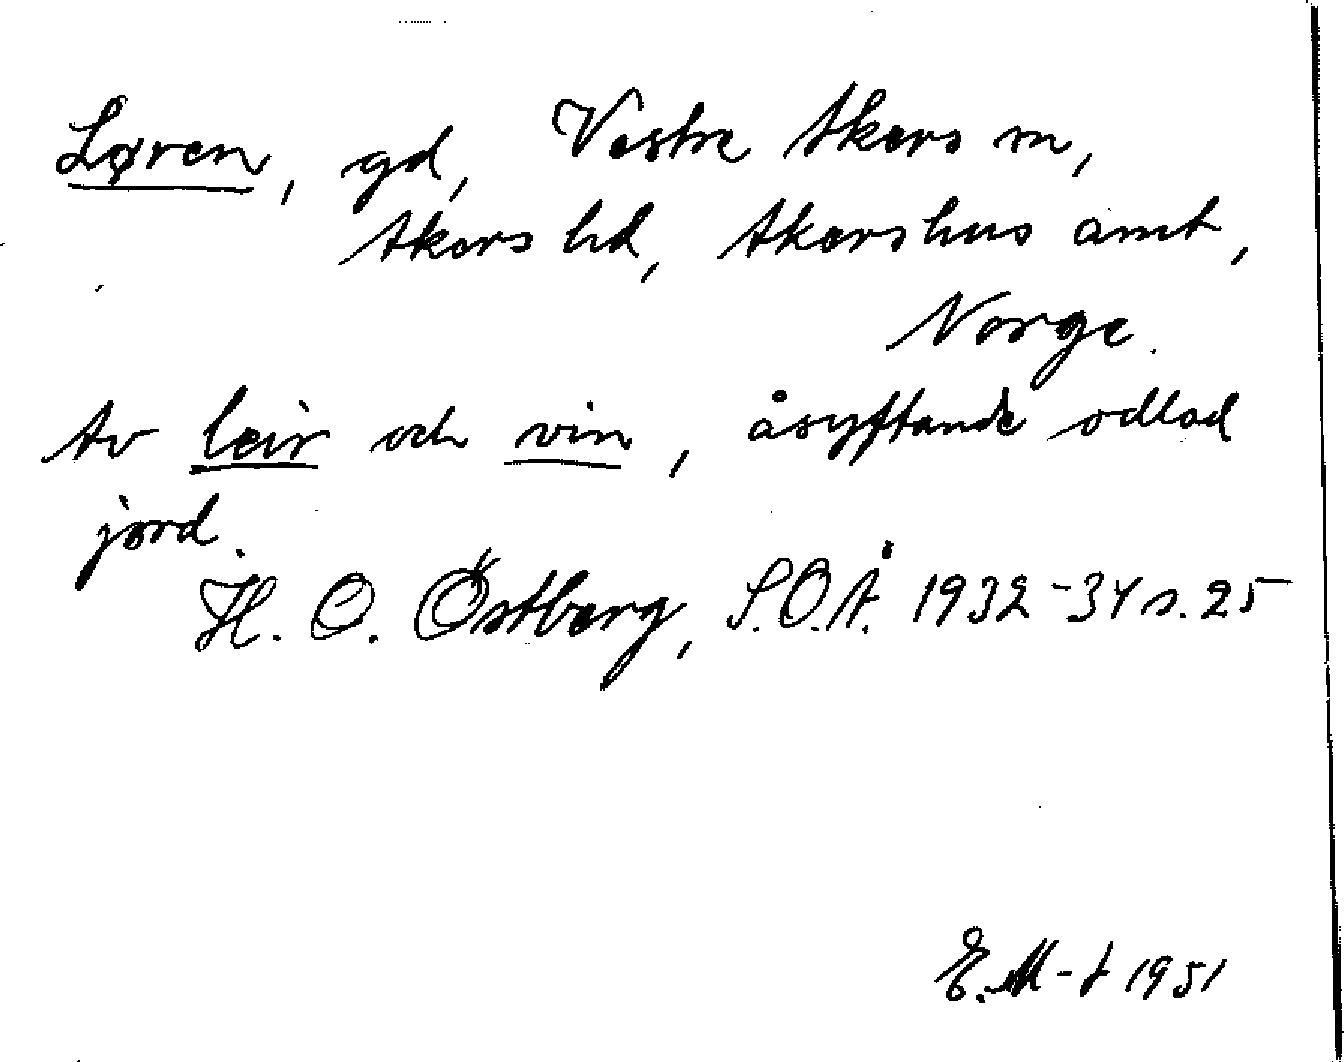 Løren, gd, Vestre Akers sn,
Akers hd, Akershus amt,
Norge.
Av leir och vin, åsyftande odlad
jord.
H. O. Östberg, S.O.Å. 1932-34 s. 25
E. M-t 1951